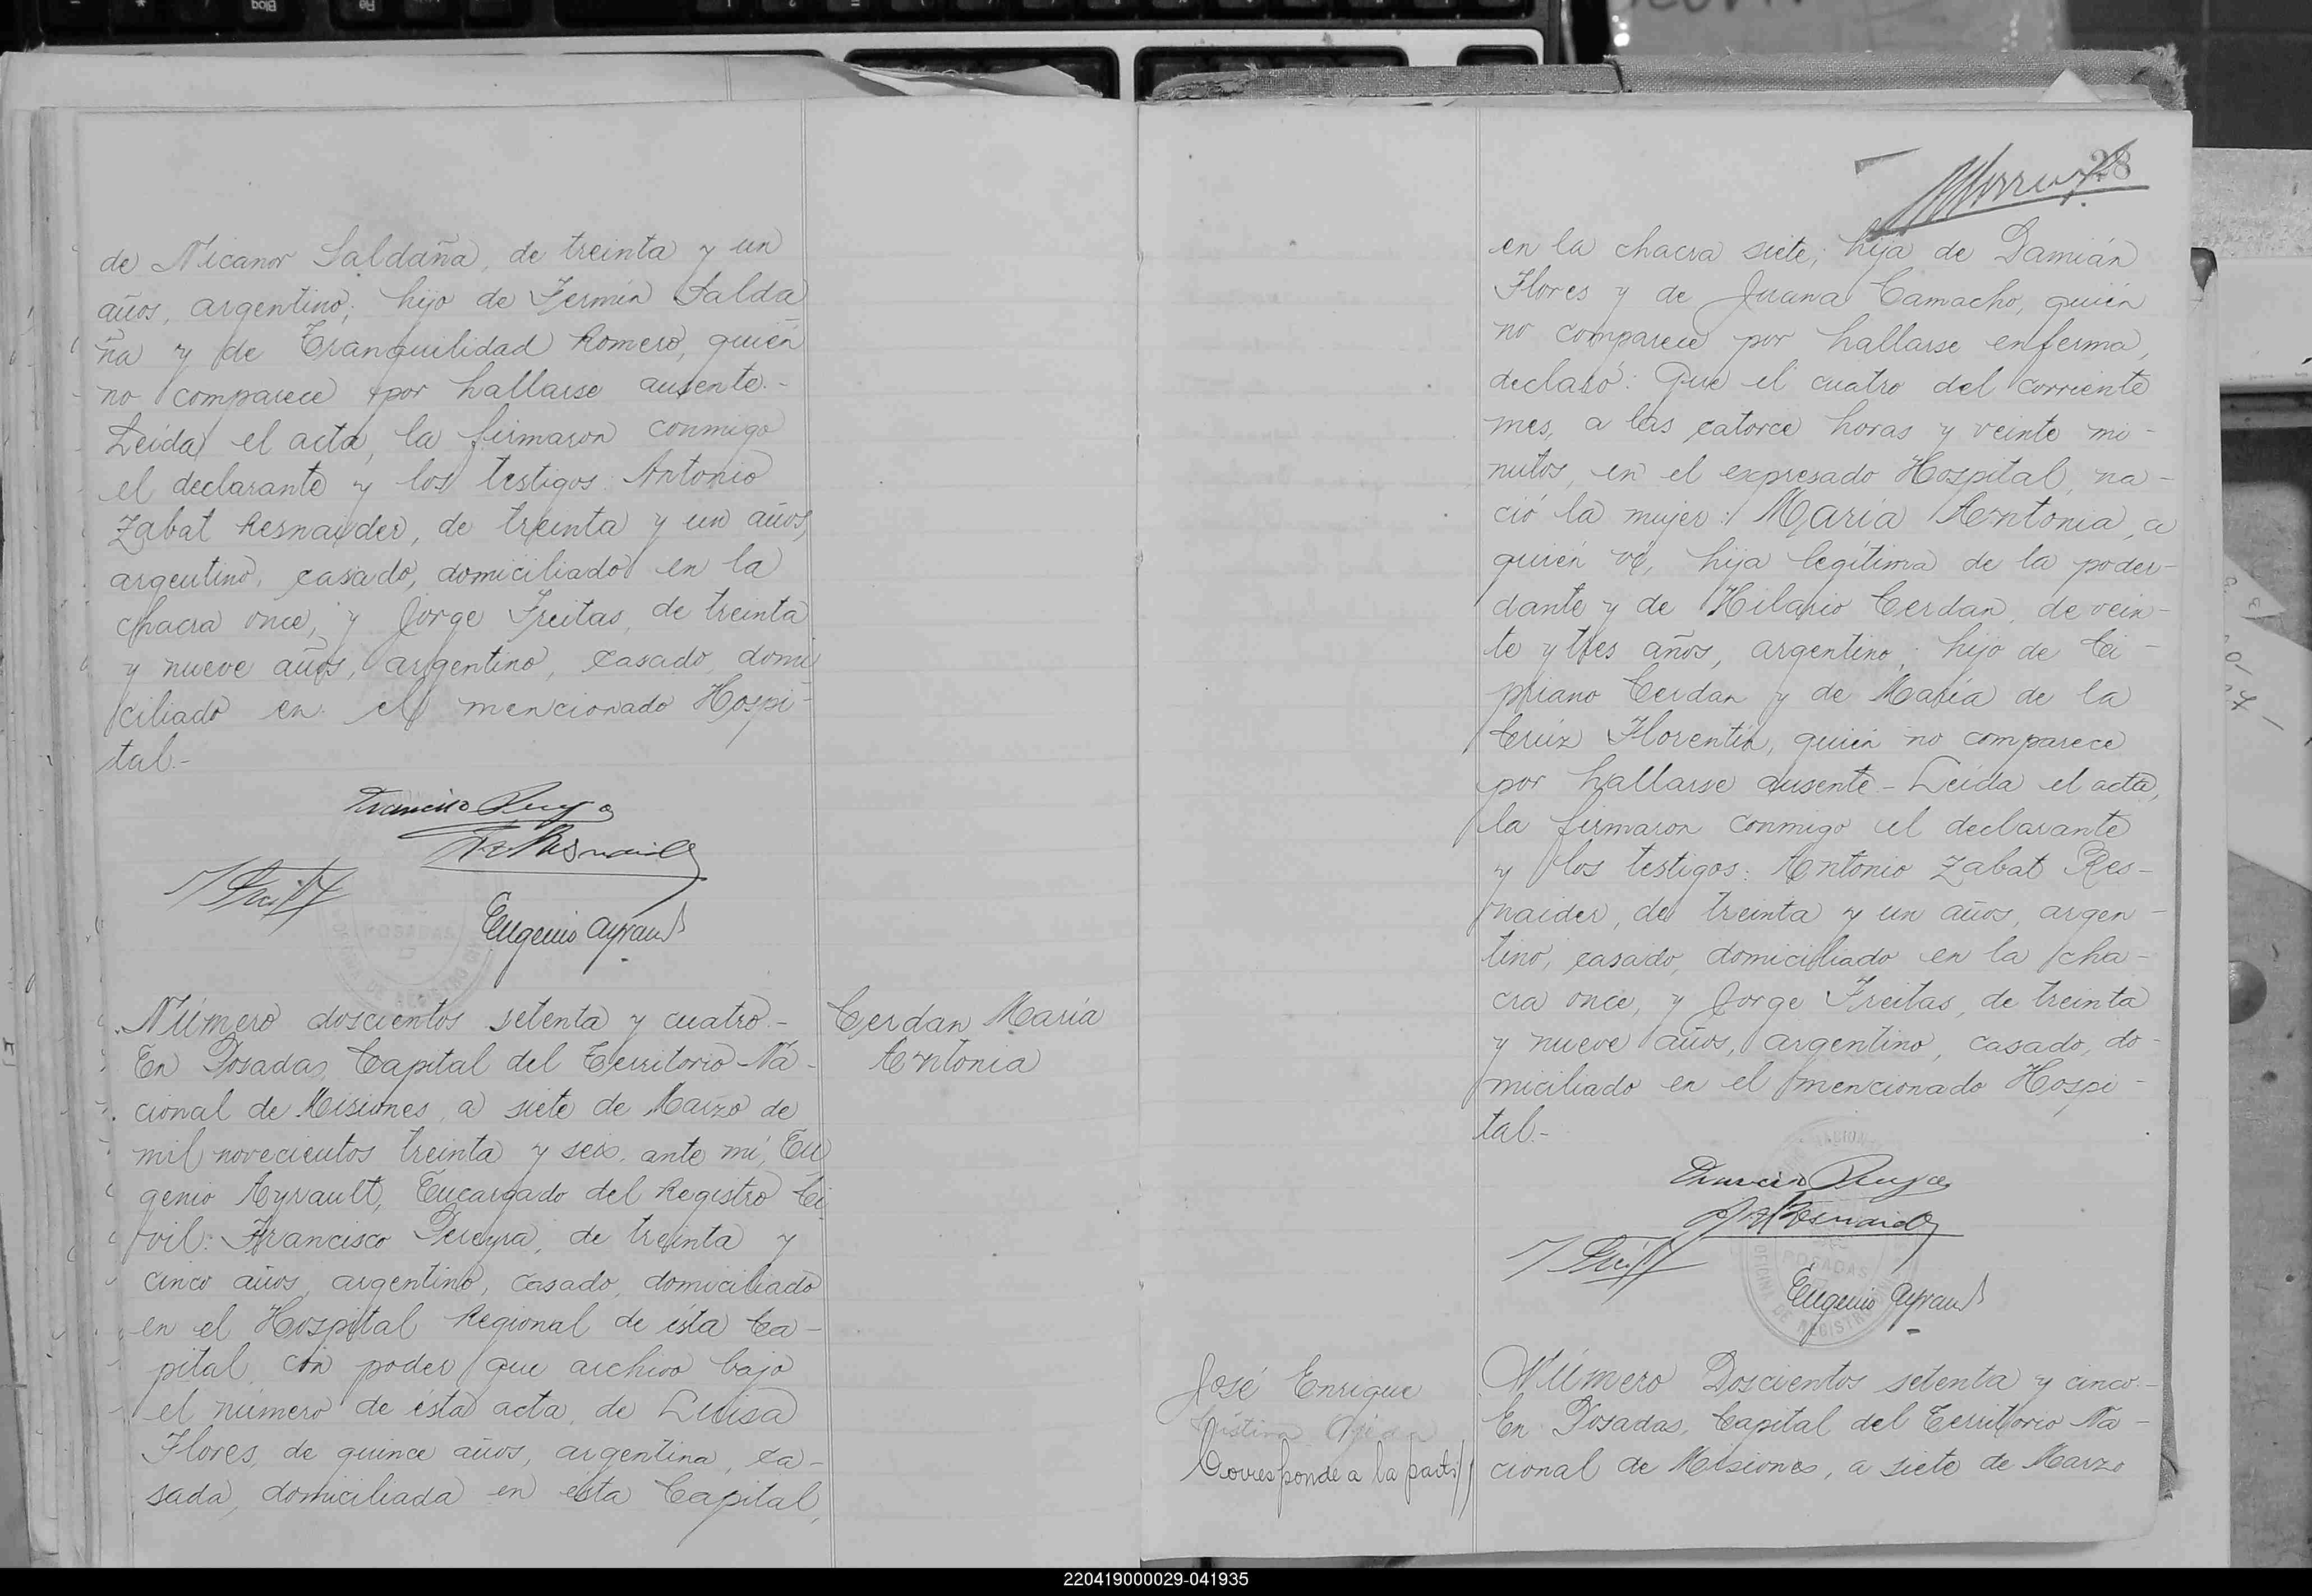 de Nicanor Saldaña, de treinta y un
años, argentino; hijo de Fermín Salda
ña y de Tranquilidad Romero, quién
no comparece por hallarse ausente.-
Leída el acta, la firmaron conmigo
el declarante y los testigos: Antonio
Zabat Resnaider, de treinta y un años,
argentino, casado, domiciliado en la
chacra once, y Jorge Freitas, de treinta
y nueve años, argentino, casado, domi
ciliado en el mencionado Hospi-
tal.-
Eugenio Ayrault
POSADAS
Número doscientos setenta y cuatro.-
En Posadas, Capital del Territorio Na-
cional de Misiones, a siete de Marzo de
mil novecientos treinta y seis, ante mí, Eu
genio Ayrault, Encargado del Registro Ci
vil: Francisco Pereyra, de treinta y
cinco años, argentino, casado, domiciliado
en el Hospital Regional de ésta Ca-
pital, con poder que archivo bajo
el número de ésta acta, de Luisa
Flores, de quince años, argentina, ca-
sada, domiciliada en ésta Capital,
Cerdan María
Antonia
28
en la chacra siete; hija de Damián
Flores y de Juana Camacho, quién
no comparece por hallarse enferma,
declaró: Que el cuatro del corriente
mes, a las catorce horas y veinte mi-
nutos, en el expresado Hospital, na-
ció la mujer: María Antonia, a
quién ví, hija legítima de la poder-
dante y de Hilario Cerdan, de vein-
te y tres años, argentino; hijo de Ci-
priano Cerdan y de María de la
Crúz Florentín, quién no comparece
por hallarse ausente.- Leída el acta,
la firmaron conmigo el declarante
y los testigos: Antonio Zabat Res-
naider, de treinta y un años, argen-
tino, casado, domiciliado en la cha-
cra once, y Jorge Freitas, de treinta
y nueve años, argentino, casado, do-
miciliado en el mencionado Hospi-
tal.-
Eugenio Ayrault
POSADAS
José Enrique
Corresponde a la parti//
Número Doscientos setenta y cinco.-
En Posadas, Capital del Territorio Na-
cional de Misiones, a siete de Marzo
220419000029-041935